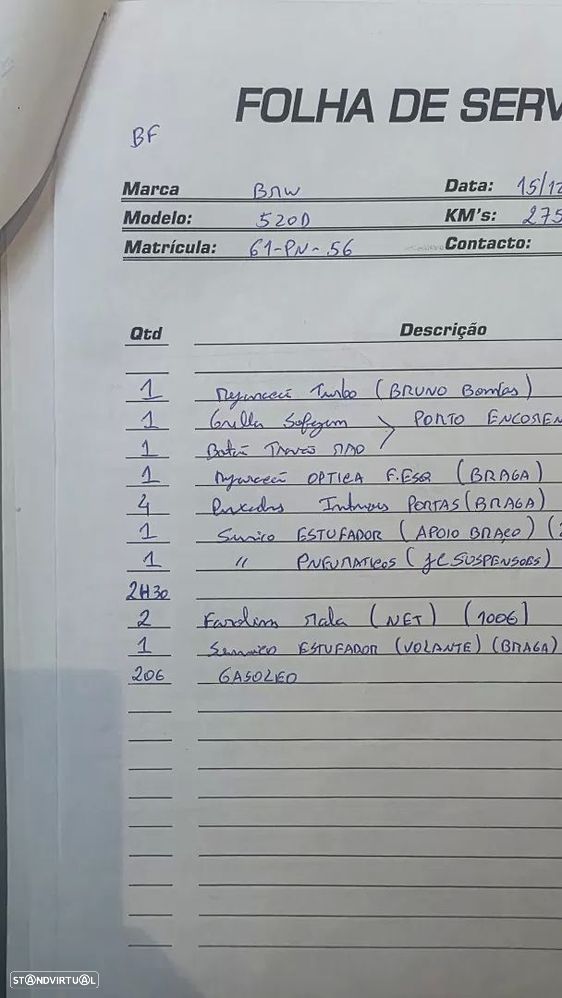 FOLHA DE SERV
BF
Marca BMW Data: 15/12
Modelo: 520D KM's: 275
Matrícula: 61-PN-56 Contacto:
Qtd Descrição
1 Turbo (BRUNO Bombas)
1 Grilla PORTO ENCOMEN
1 Botão Travão MÃO
1 OPTICA F.ESQ (BRAGA)
4 Puxadores Interiores PORTAS (BRAGA)
1 Serviço ESTUFADOR (APOIO BRAÇO) (
1 " PNEUMATICOS (JC SUSPENSOES)
2H30
2 Farolim Mala (NET) (100€)
1 Serviço ESTUFADOR (VOLANTE) (BRAGA)
20€ GASOLEO
STANDVIRTUAL